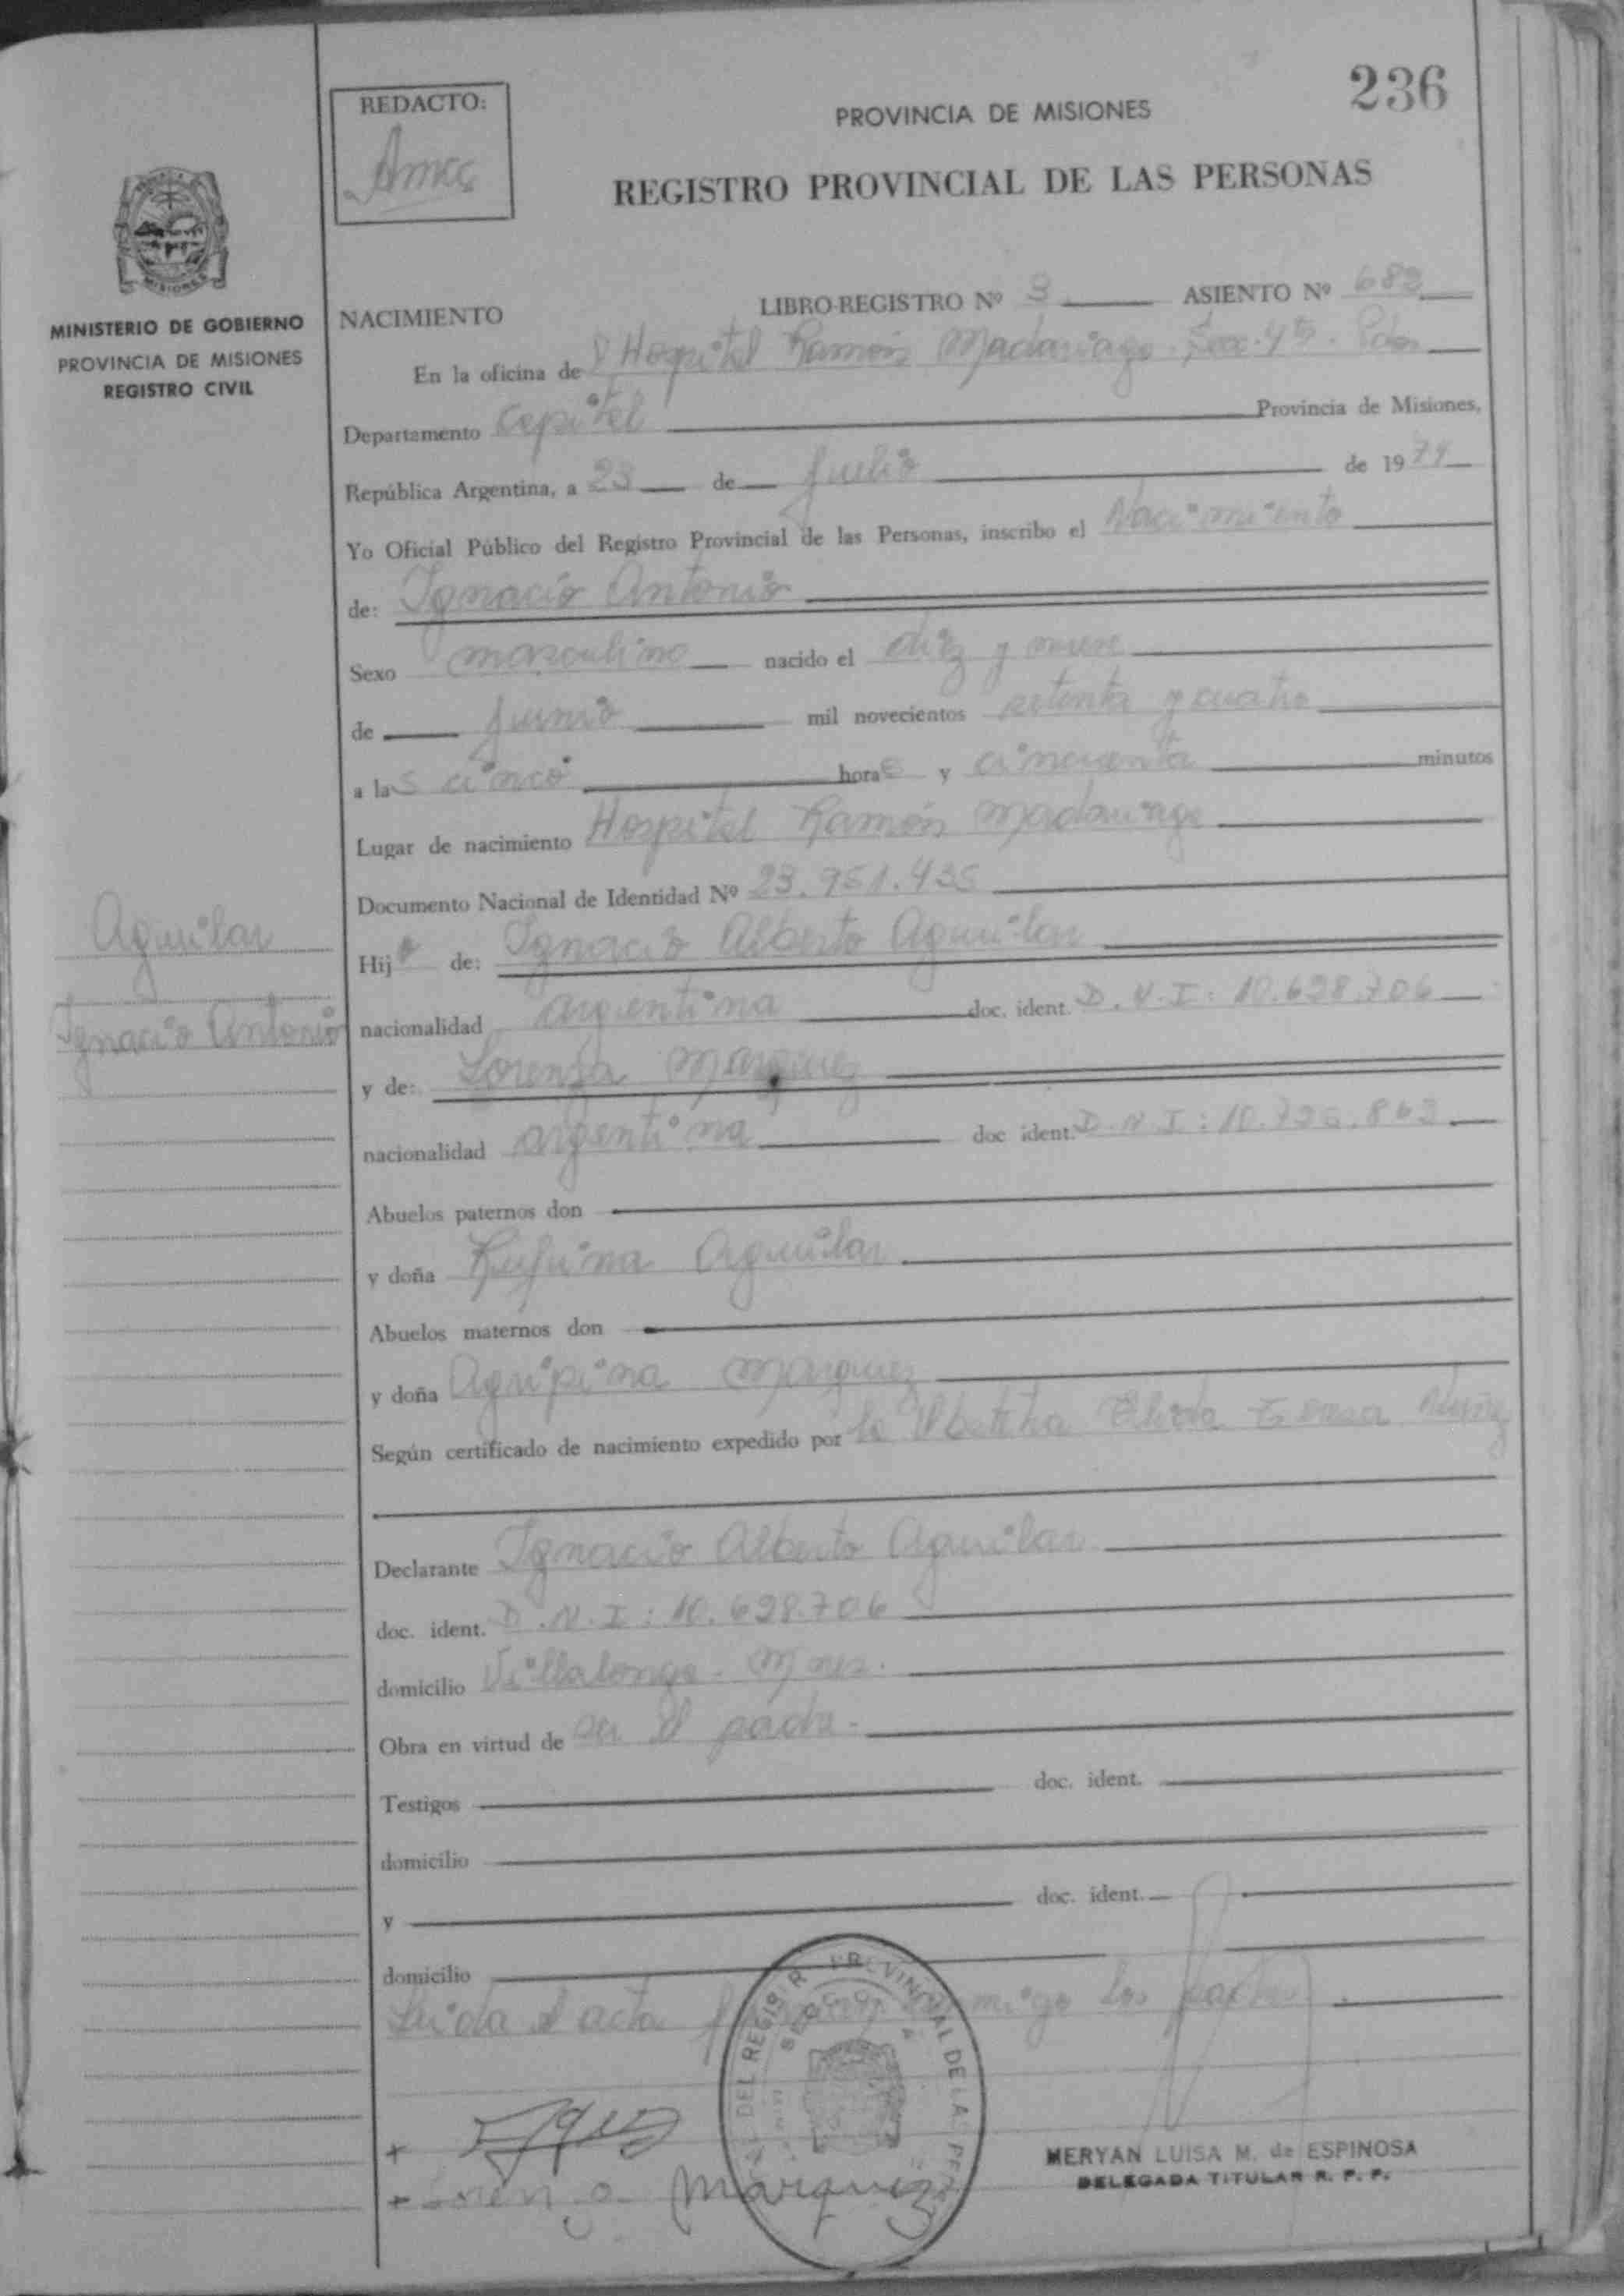 236
REDACTO:
PROVINCIA DE MISIONES
REGISTRO PROVINCIAL DE LAS PERSONAS
MISIONES
MINISTERIO DE GOBIERNO
PROVINCIA DE MISIONES
REGISTRO CIVIL
NACIMIENTO LIBRO-REGISTRO Nº 3 ASIENTO Nº 682
En la oficina de Hospital Ramón Madariaga Sec. 4ta. Pdas
Departamento Capital Provincia de Misiones,
República Argentina, a 23 de Julio de 1974
Yo Oficial Público del Registro Provincial de las Personas, inscribo el Nacimiento
de: Ignacio Antonio
Sexo masculino nacido el diez y nueve
de junio mil novecientos setenta y cuatro
a las cinco horas y cincuenta minutos
Lugar de nacimiento Hospital Ramón Madariaga
Documento Nacional de Identidad Nº 23.951.435
Aguilar
Ignacio Antonio
Hijo de: Ignacio Alberto Aguilar
nacionalidad argentina doc. ident. D.N.I: 10.628.706
y de: Lorenza Marquez
nacionalidad argentina doc ident. D.N.I: 10.726.863
Abuelos paternos don
y doña Rufina Aguilar
Abuelos maternos don
y doña Agripina Marquez
Según certificado de nacimiento expedido por la Obstetra Teresa Nuñez
Declarante Ignacio Alberto Aguilar
doc. ident. D.N.I: 10.628.706
domicilio Villalonga - Mnes.
Obra en virtud de ser el padre.
Testigos doc. ident.
domicilio
y doc. ident.
domicilio
Leida el acta firman conmigo los padres.
DEL REGISTR PROVINCIAL DE LA PER
Marquez
MERYAN LUISA M. de ESPINOSA
DELEGADA TITULAR R. P. P.